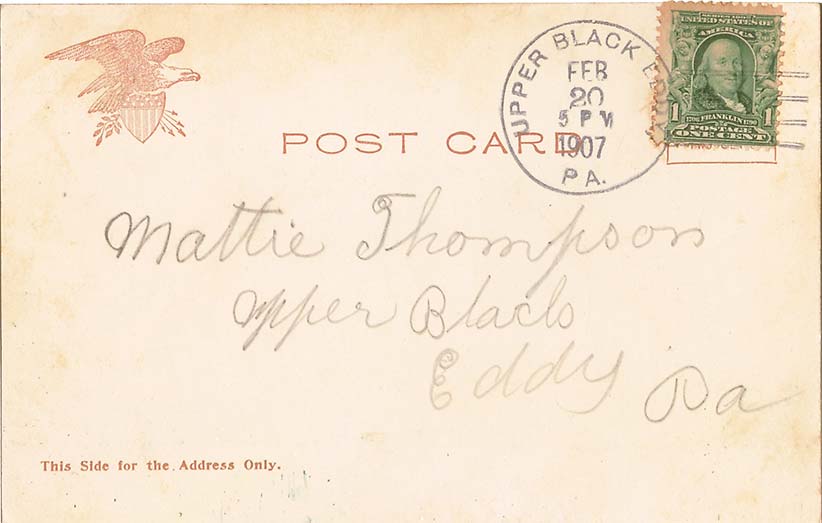 UPPER BLACK EDDY
FEB
20
5 PM
1907
PA.
SERIES 1902
UNITED STATES OF
AMERICA
1 FRANKLIN 1
POSTAGE
ONE CENT
POST CARD
Mattie Thompson
Upper Black
Eddy Pa
This Side for the Address Only.